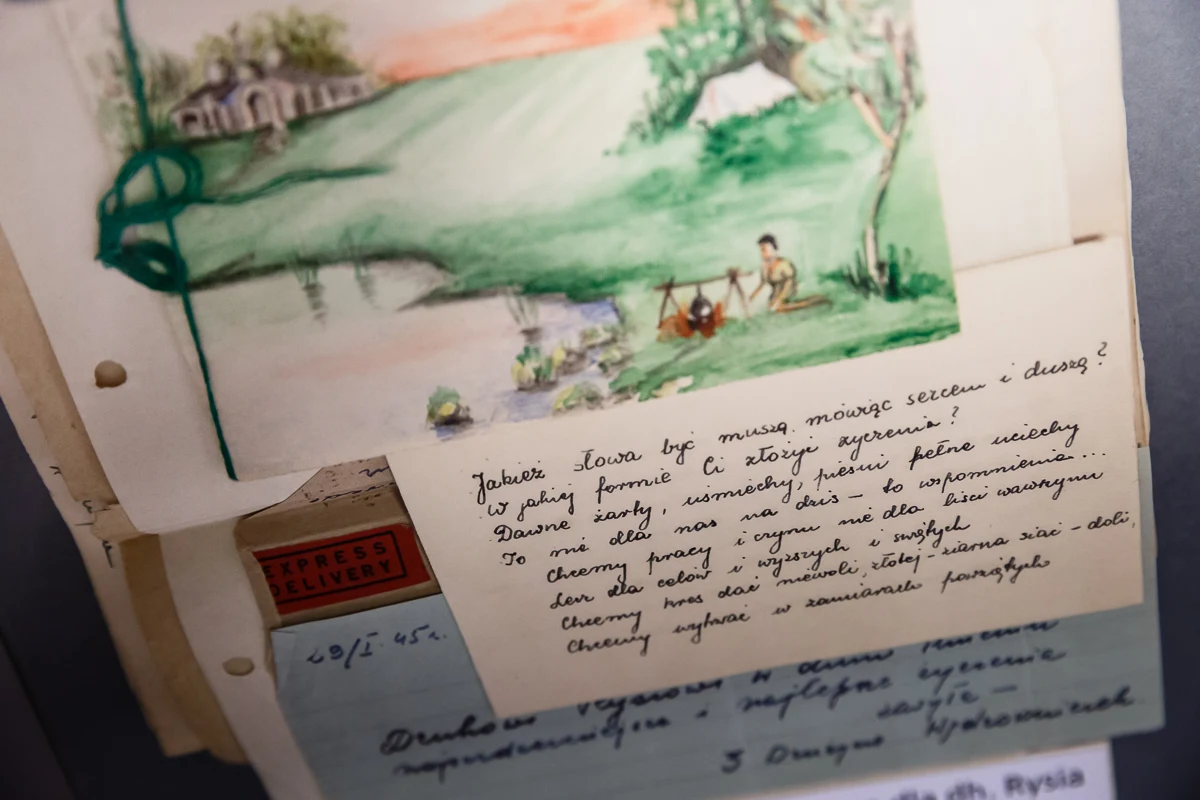 Jakież słowa być muszą, mówiąc sercem i duszą?
W jakiej formie Ci złożyć życzenia?
Dawne żarty, uśmiechy, pieśni pełne uciechy
To nie dla nas na dziś – to wspomnienia...
Chcemy pracy i czynu nie dla liści wawrzynu
Lecz dla celów i wyższych i świętych
Chcemy kres dać niewoli, złotej – ziarna siać – doli,
Chcemy wytrwać w zamiarach powziętych
EXPRESS
DELIVERY
29/I 45 r.
Druhowi Rysiowi w dniu Imienin
najserdeczniejsze i najlepsze życzenia
3 Drużyna
dla dh. Rysia